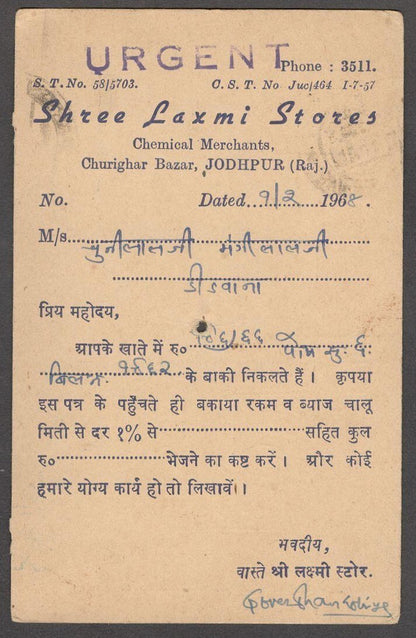 URGENT
Phone : 3511.
S. T. No. 58/5703. C. S. T. No Juc/464 1-7-57
Shree Laxmi Stores
Chemical Merchants,
Churighar Bazar, JODHPUR (Raj.)
No. Dated १/२ 1968.
M/s चुनीलालजी मंगीलालजी
डीडवाना
प्रिय महोदय,
आपके खाते में रु० ६/६६
के बाकी निकलते हैं। कृपया
इस पत्र के पहुँचते ही बकाया रकम व ब्याज चालू
मिती से दर १% से सहित कुल
रु० भेजने का कष्ट करें। और कोई
हमारे योग्य कार्य हो तो लिखावें।।
भवदीय,
वास्ते श्री लक्ष्मी स्टोर.